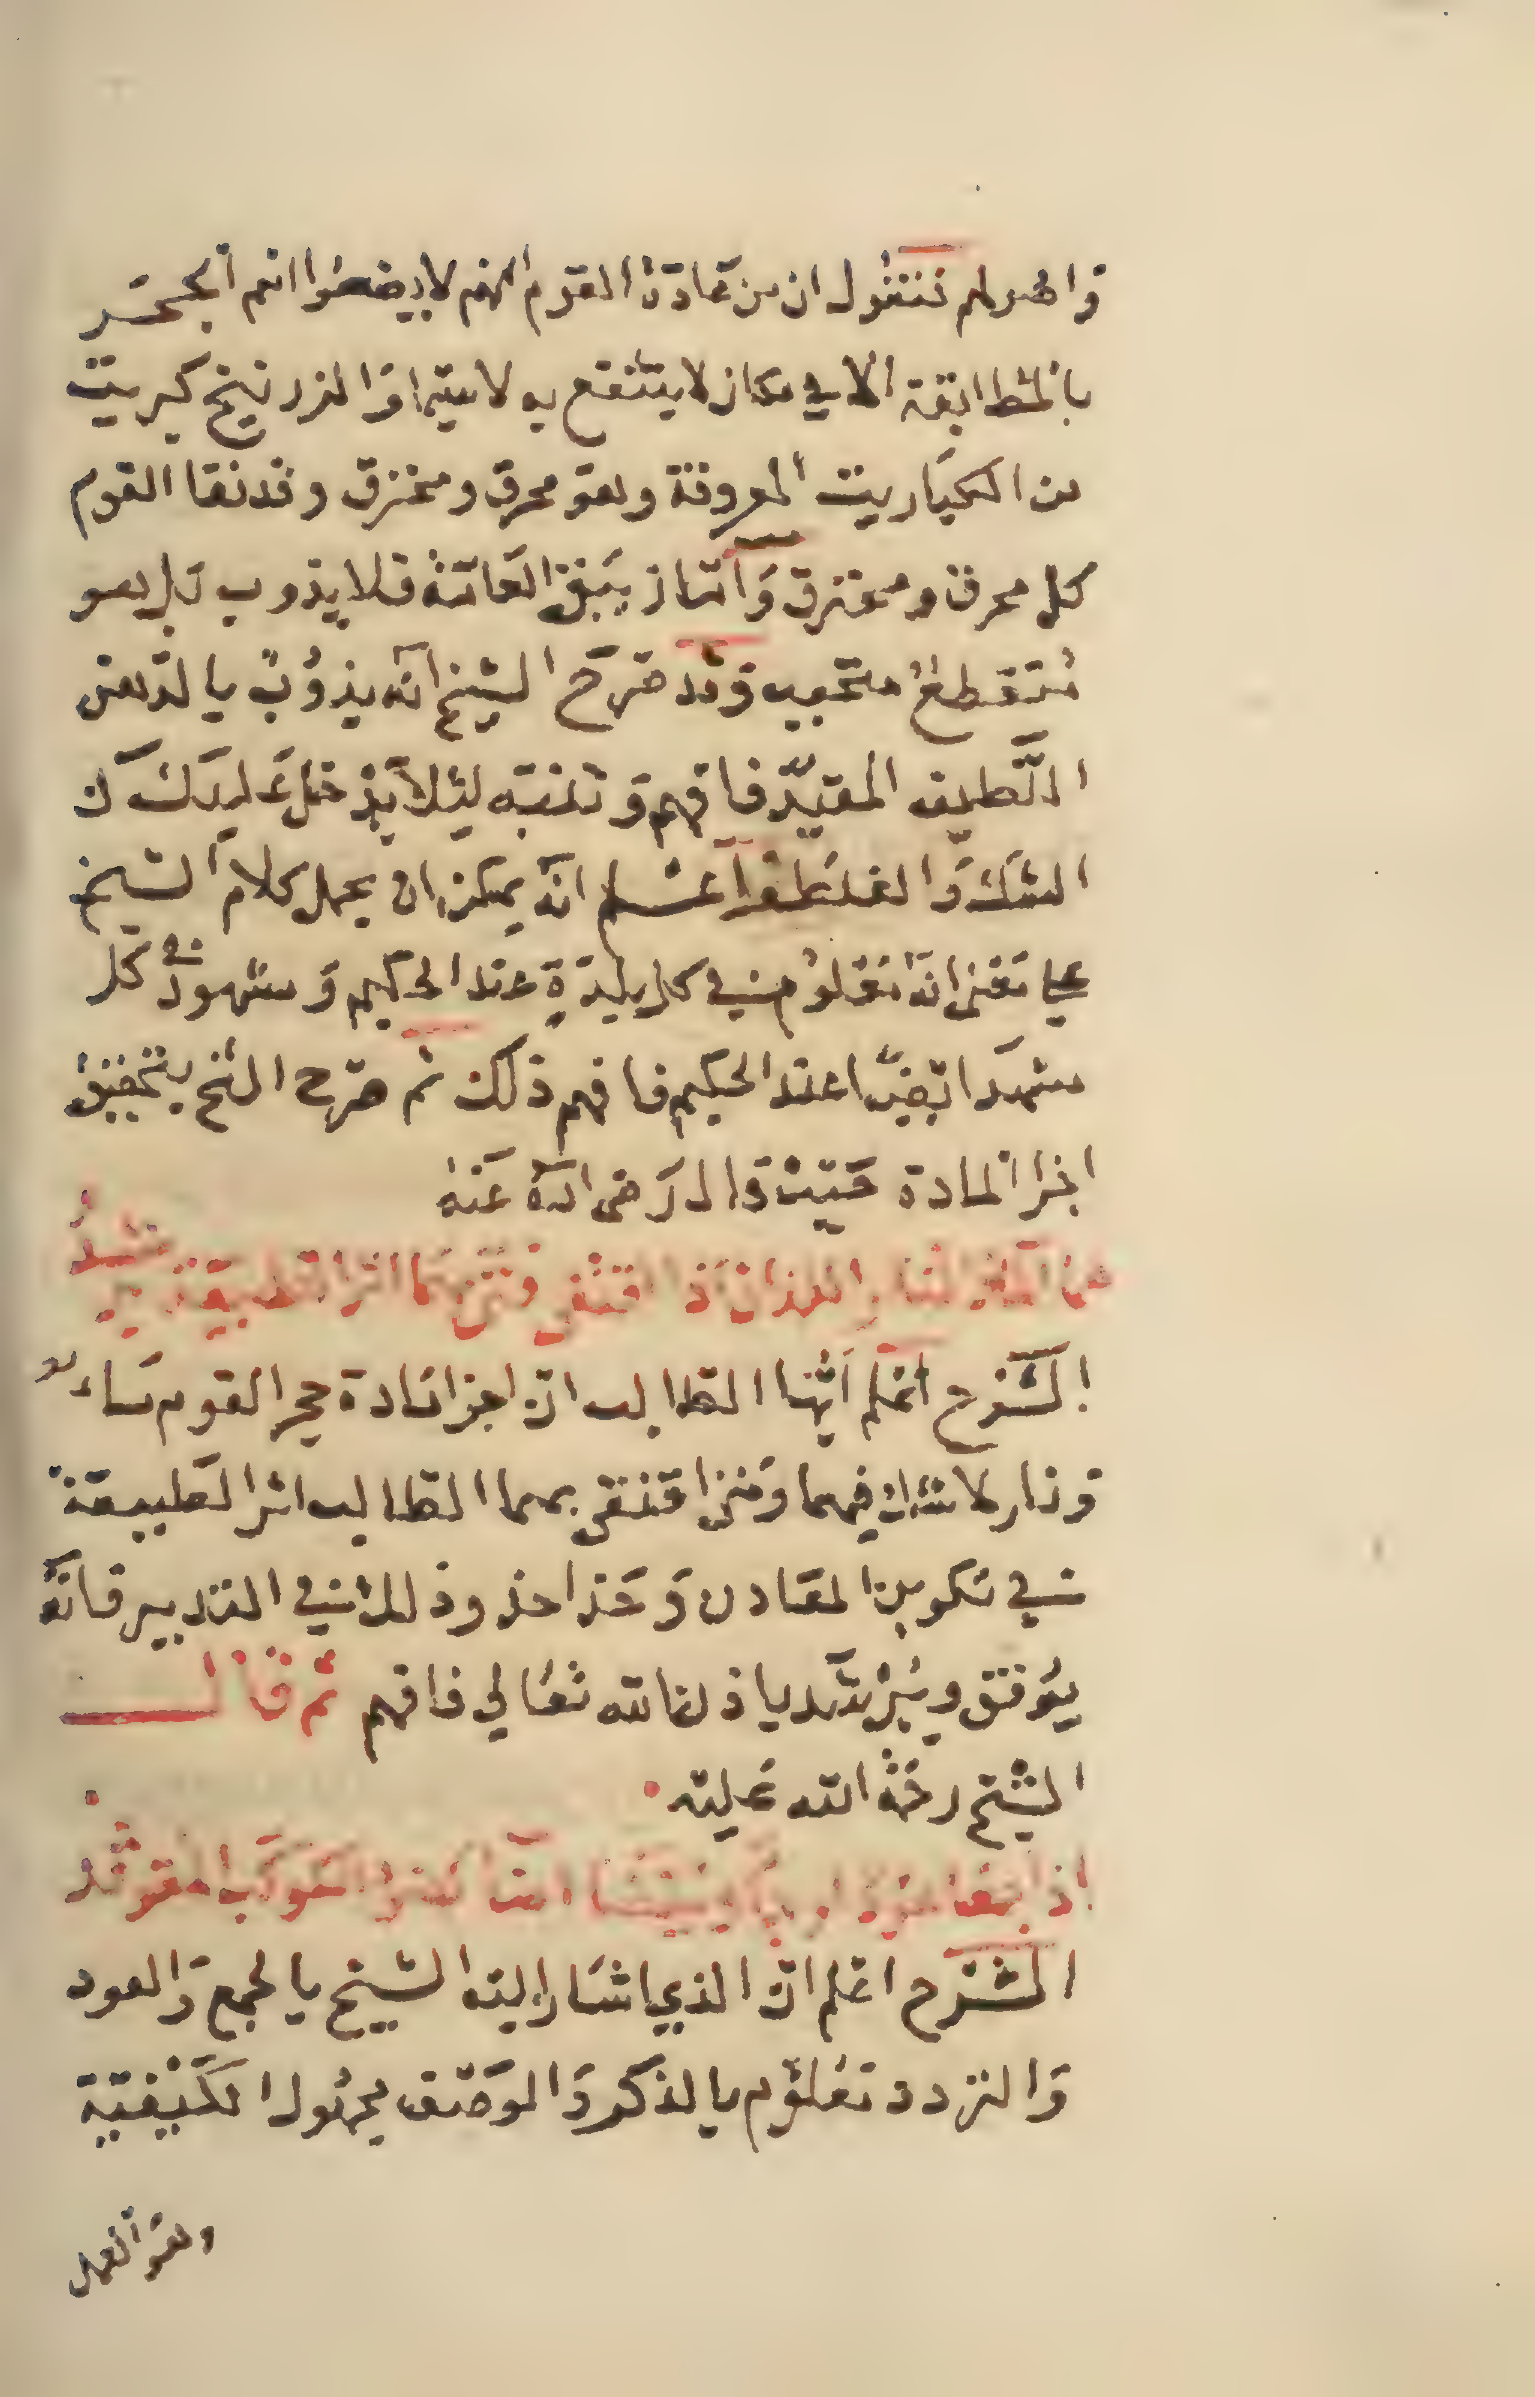 واصولهم فنقول ان من عادة القوم انهم لا يضعوا اسم الحجر
بالمطابقة الا في مكان لا ينتفع به لا سيما والزرنيخ كبريت
من الكباريت المعروفة وهو محرق ومحترق وقد نفا القوم
كل محرق ومحترق وأما زيبق العامة فلا يذوب بل هو
متقطع متحبب وقد صرح الشيخ انه يذوب بالدهن
اللطيف المقيد فافهم وتنبه ليلا يدخل عليك
الشك والغلط واعلم انه يمكن ان يحمل كلام الشيخ
على معنى انه معلوم في كل بلدة عند الحكيم ومشهود في كل
مشهد ايضا عند الحكيم فافهم ذلك ثم صرح الشيخ بتحقيق
اجزا المادة حيث قال رضى الله عنه
الشرح اعلم ايها الطالب ان اجزا مادة حجر القوم ماء
ونار لا شك فيهما ومن اقتفى بهما الطالب اثر الطبيعة
في تكوين المعادن وحذا حذو ذلك في التدبير فانه
يوفق ويرشد باذن الله تعالي فافهم ثم قال
الشيخ رحمة الله عليه
الشرح اعلم ان الذي اشار اليه الشيخ بالجمع والعود
والتردد معلوم بالذكر والوصف مجهول الكيفية
وهو العمل